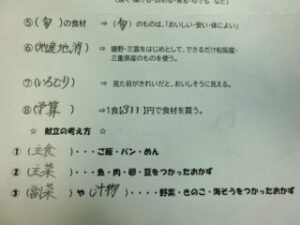 ⑤(旬)の食材 → (旬)のものは、「おいしい・安い・体によい」
⑥(地産地消) → 嬉野・三雲をはじめとして、できるだけ松阪産・
三重県産のものを使う。
⑦(いろどり) → 見た目がきれいだと、おいしそうに見える。
⑧(予算) →1食(311)円で食材を買う。
☆ 献立の考え方 ☆
①(主食)・・・ご飯・パン・めん
②(主菜)・・・魚・肉・卵・豆をつかったおかず
③(副菜)や(汁物)・・・・野菜・きのこ・海そうをつかったおかず